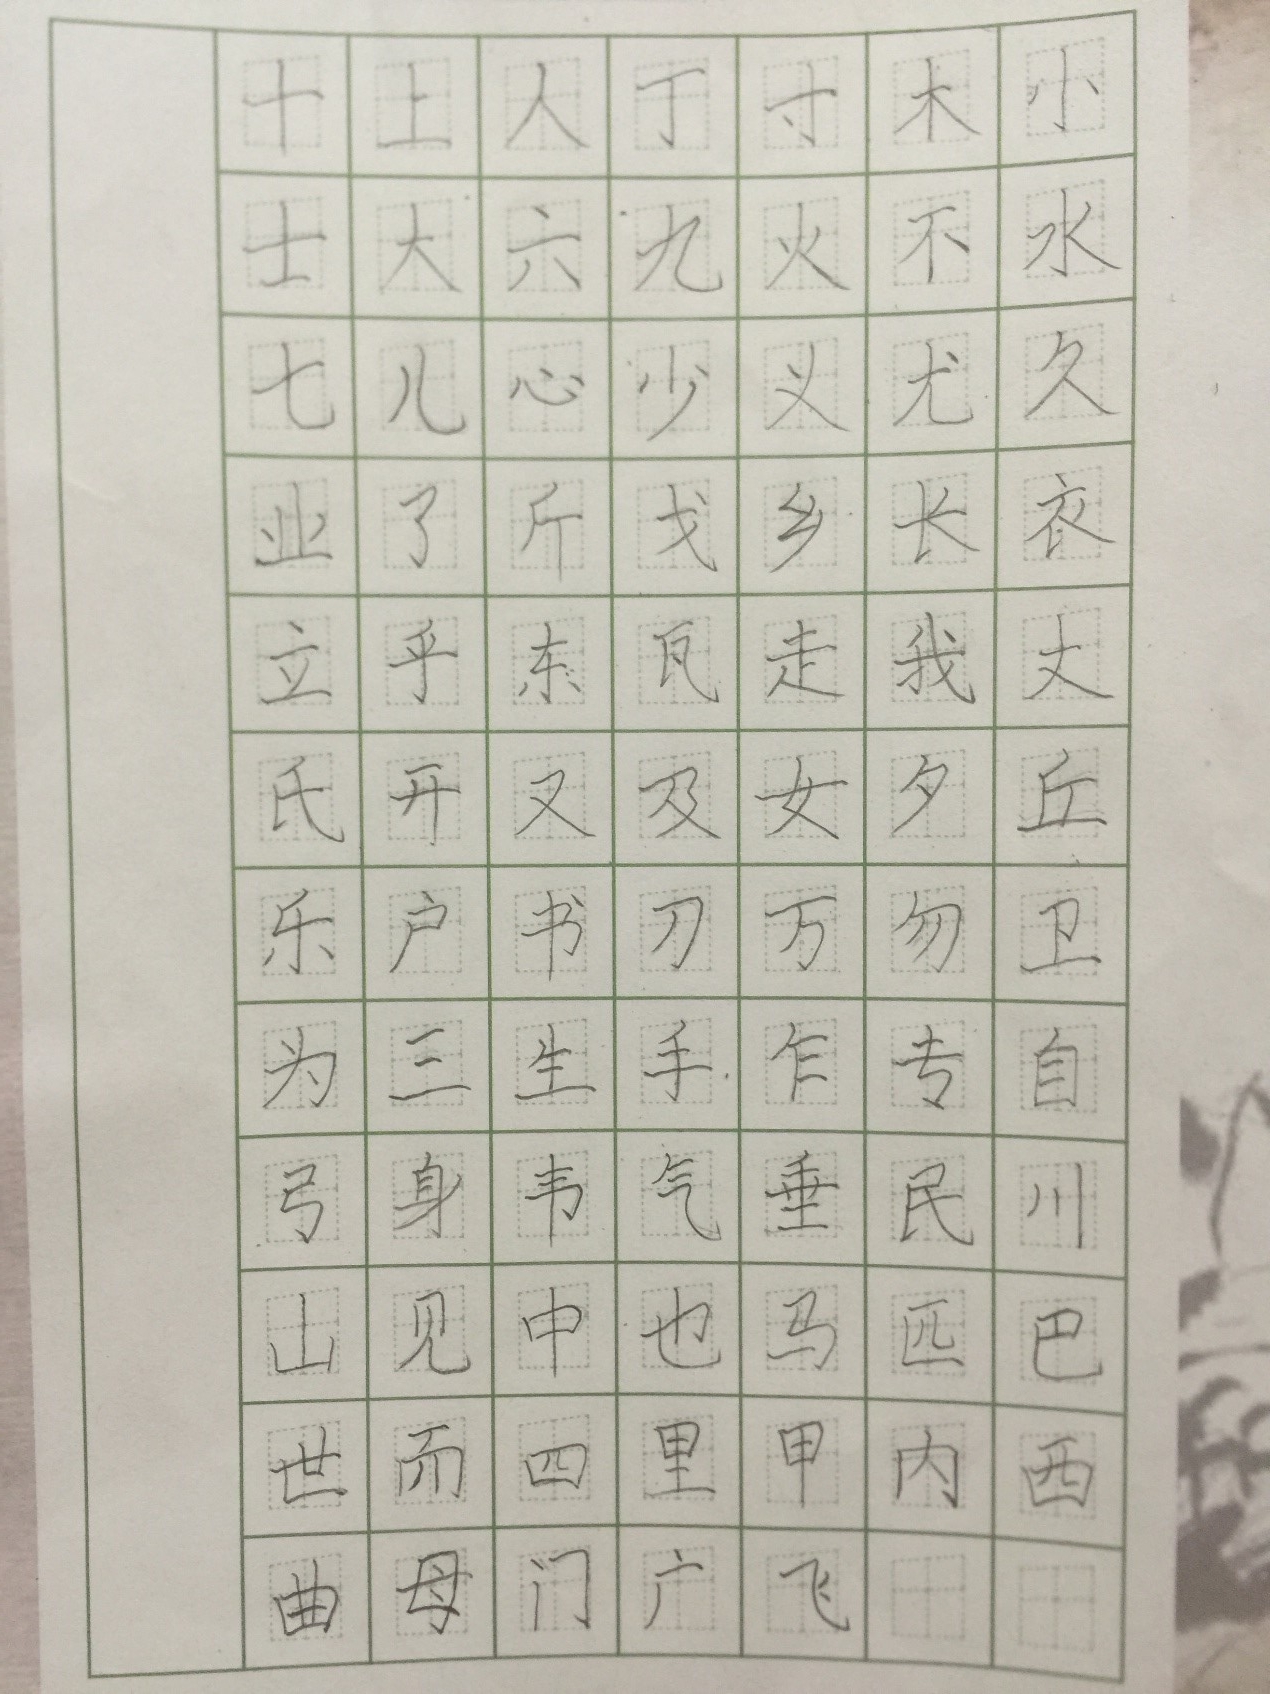 十上人丁寸木小
士大六九火不水
七儿心少义尤久
业了斤戈乡长衣
立乎东瓦走我丈
氏开又及女夕丘
乐户书刀万勿卫
为三生手乍专自
弓身韦气垂民川
山见中也马匹巴
世而四里甲内西
曲母门广飞